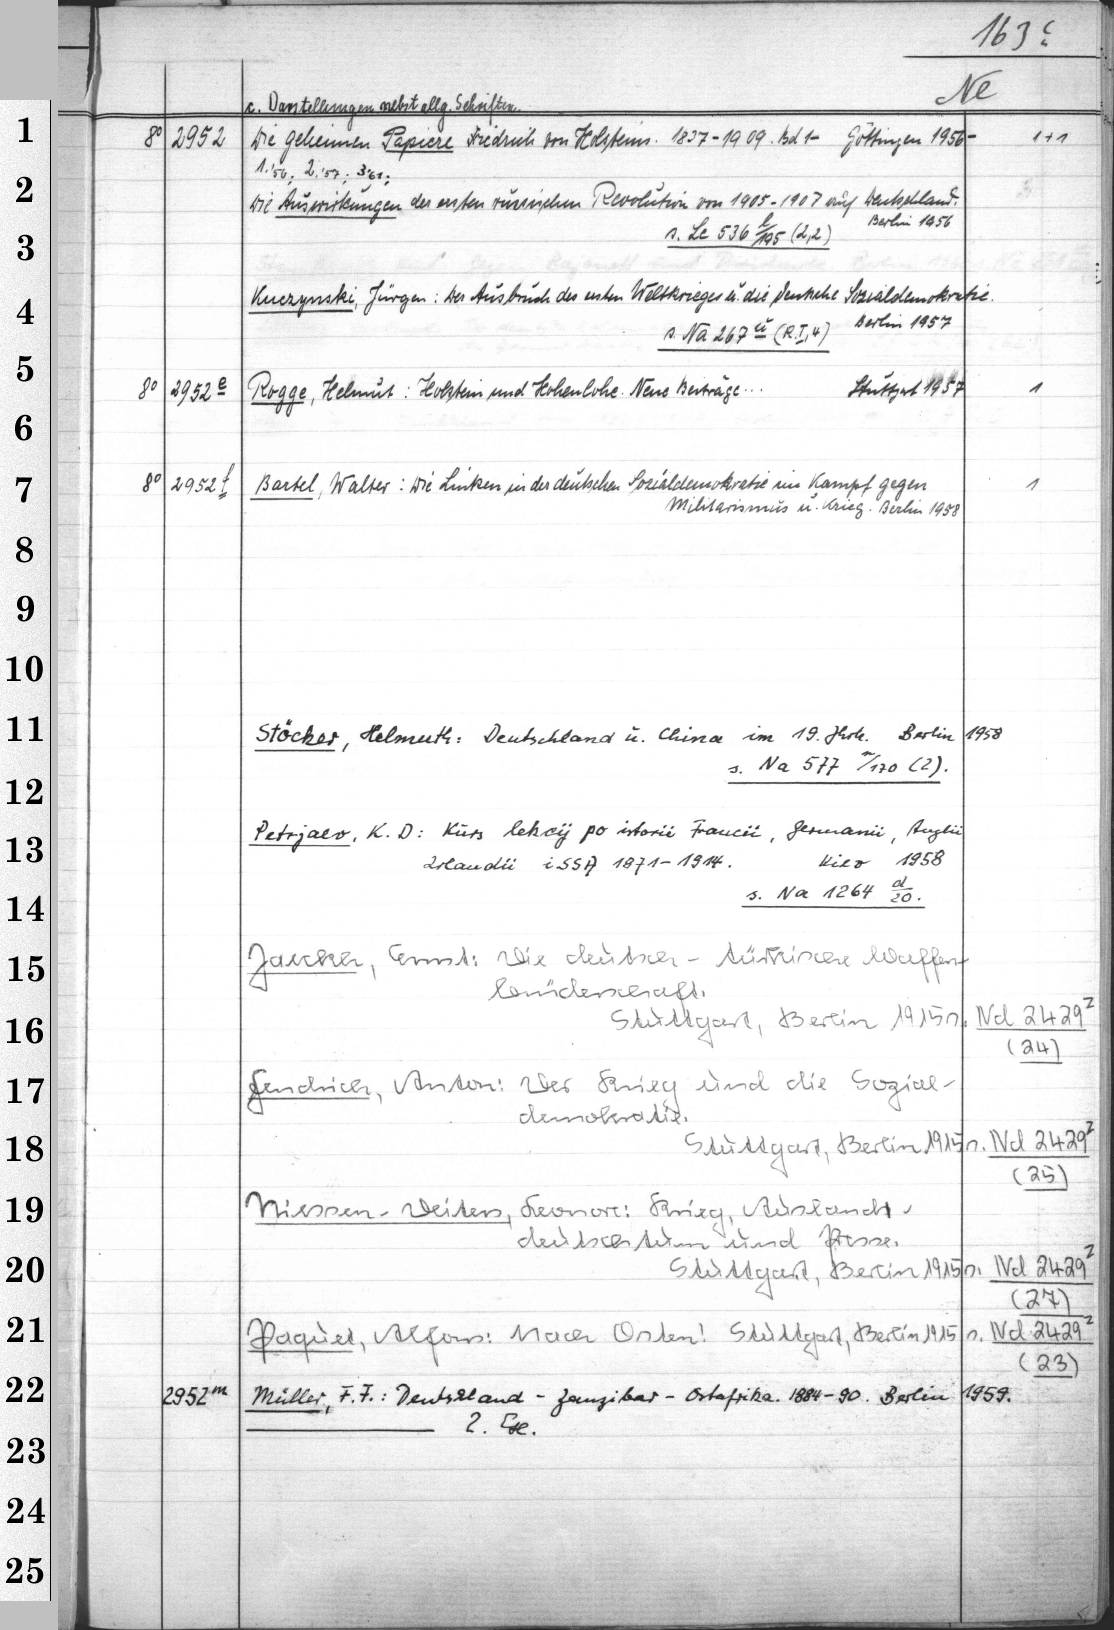 163 c
Ne
c. Darstellungen nebst allg. Schriften.
1 8° 2952 Die geheimen Papiere Friedrich von Holsteins. 1837-1909. Bd 1- Göttingen 1956- 1+1
1.'56; 2.'57; 3'61;
2 Die Auswirkungen der ersten russischen Revolution von 1905-1907 auf Deutschland.
Berlin 1956
3 s. Le 536 l/195 (2,2)
4 Kuczynski, Jürgen: Der Ausbruch des ersten Weltkrieges u. die deutsche Sozialdemokratie.
Berlin 1957
s. Na 267 u (R.I,4)
5 8° 2952 e Rogge, Helmut: Holstein und Hohenlohe. Neue Beiträge... Stuttgart 1957 1
6
7 8° 2952 f Bartel, Walter: Die Linken in der deutschen Sozialdemokratie im Kampf gegen 1
Militarismus u. Krieg. Berlin 1958
8
9
10
11 Stöcker, Helmuth: Deutschland u. China im 19. Jhrh. Berlin 1958
s. Na 577 /170 (2).
12
13 Petrjaev, K. D: Kurs lekcij po istorii Francii, Germanii, Anglii
Irlandii i SSA 1871-1914. Kiev 1958
14 s. Na 1264 d/20.
15 Jaeckh, Ernst: Die deutsch-türkische Waffen-
brüderschaft.
16 Stuttgart, Berlin 1915 s. Nd 2429 z
(24)
17 Fendrich, Anton: Der Krieg und die Sozial-
demokratie.
18 Stuttgart, Berlin 1915 s. Nd 2429 z
(25)
19 Niessen-Deiters, Leonore: Krieg, Auslands-
deutschtum und Presse.
20 Stuttgart, Berlin 1915 s. Nd 2429 z
(27)
21 Paquet, Alfons: Nach Osten! Stuttgart, Berlin 1915 s. Nd 2429 z
(23)
22 2952 m Müller, F. F.: Deutschland - Zanzibar - Ostafrika. 1884-90. Berlin 1959.
2. Ex.
23
24
25